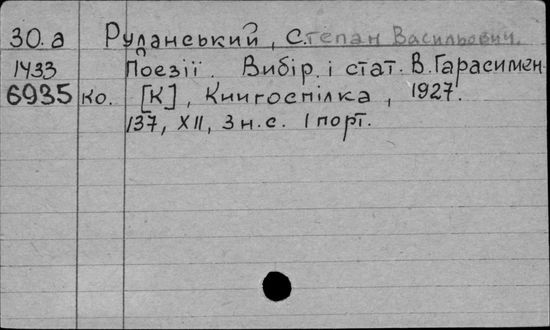 30.а Руданський, Степан Васильович.
1433 Поезії. Вибір і стат. В. Гарасимен
6935 ко. [К], Книгоспілка, 1927.
137, XII, 3 н.с. 1 порт.